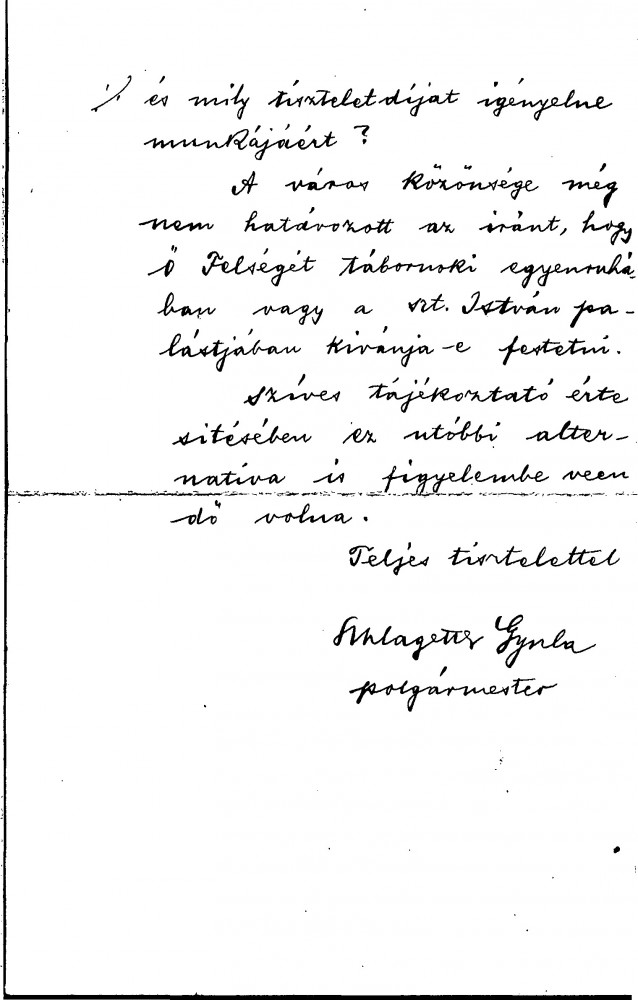 és mily tiszteletdíjat igényelne
munkájáért ?
A város közönsége még
nem határozott az iránt, hogy
ő Felségét tábornoki egyenruhá-
ban vagy a szt. István pa-
lástjában kivánja-e festetni.
Szíves tájékoztató érte
sitésében ez utóbbi alter-
nativa is figyelembe veen
dő volna.
Teljes tisztelettel
Schlagetter Gyula
polgármester